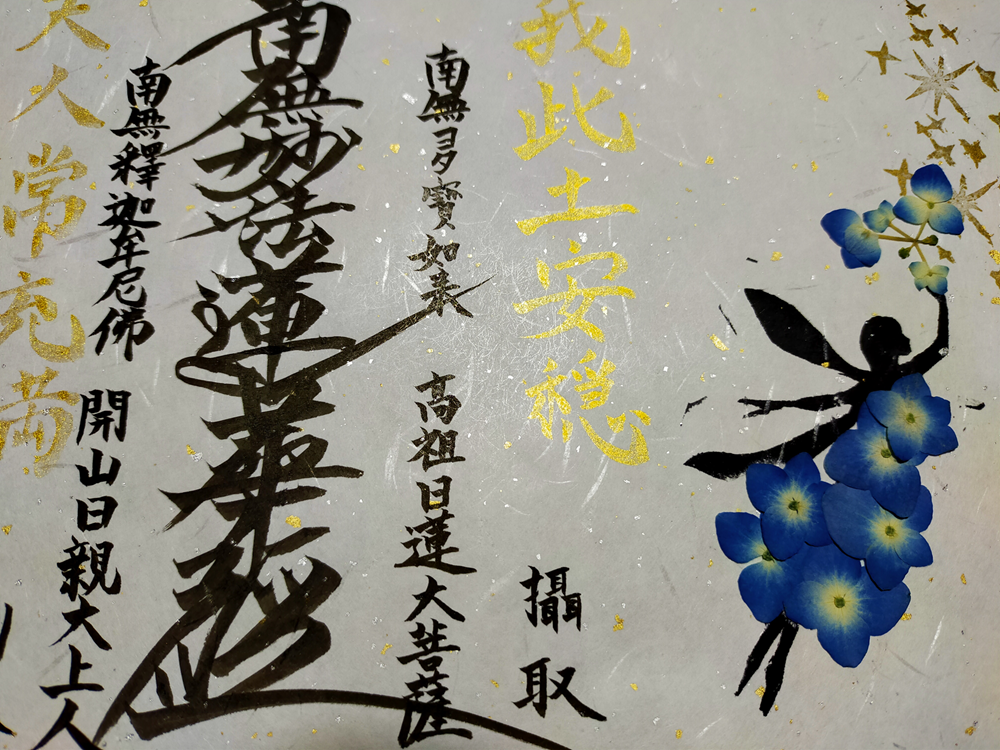 我此土安穏
攝取
南無多寳如来
高祖日蓮大菩薩
南無妙法蓮華経
南無釋迦牟尼佛
開山日親大上人
天人常充満